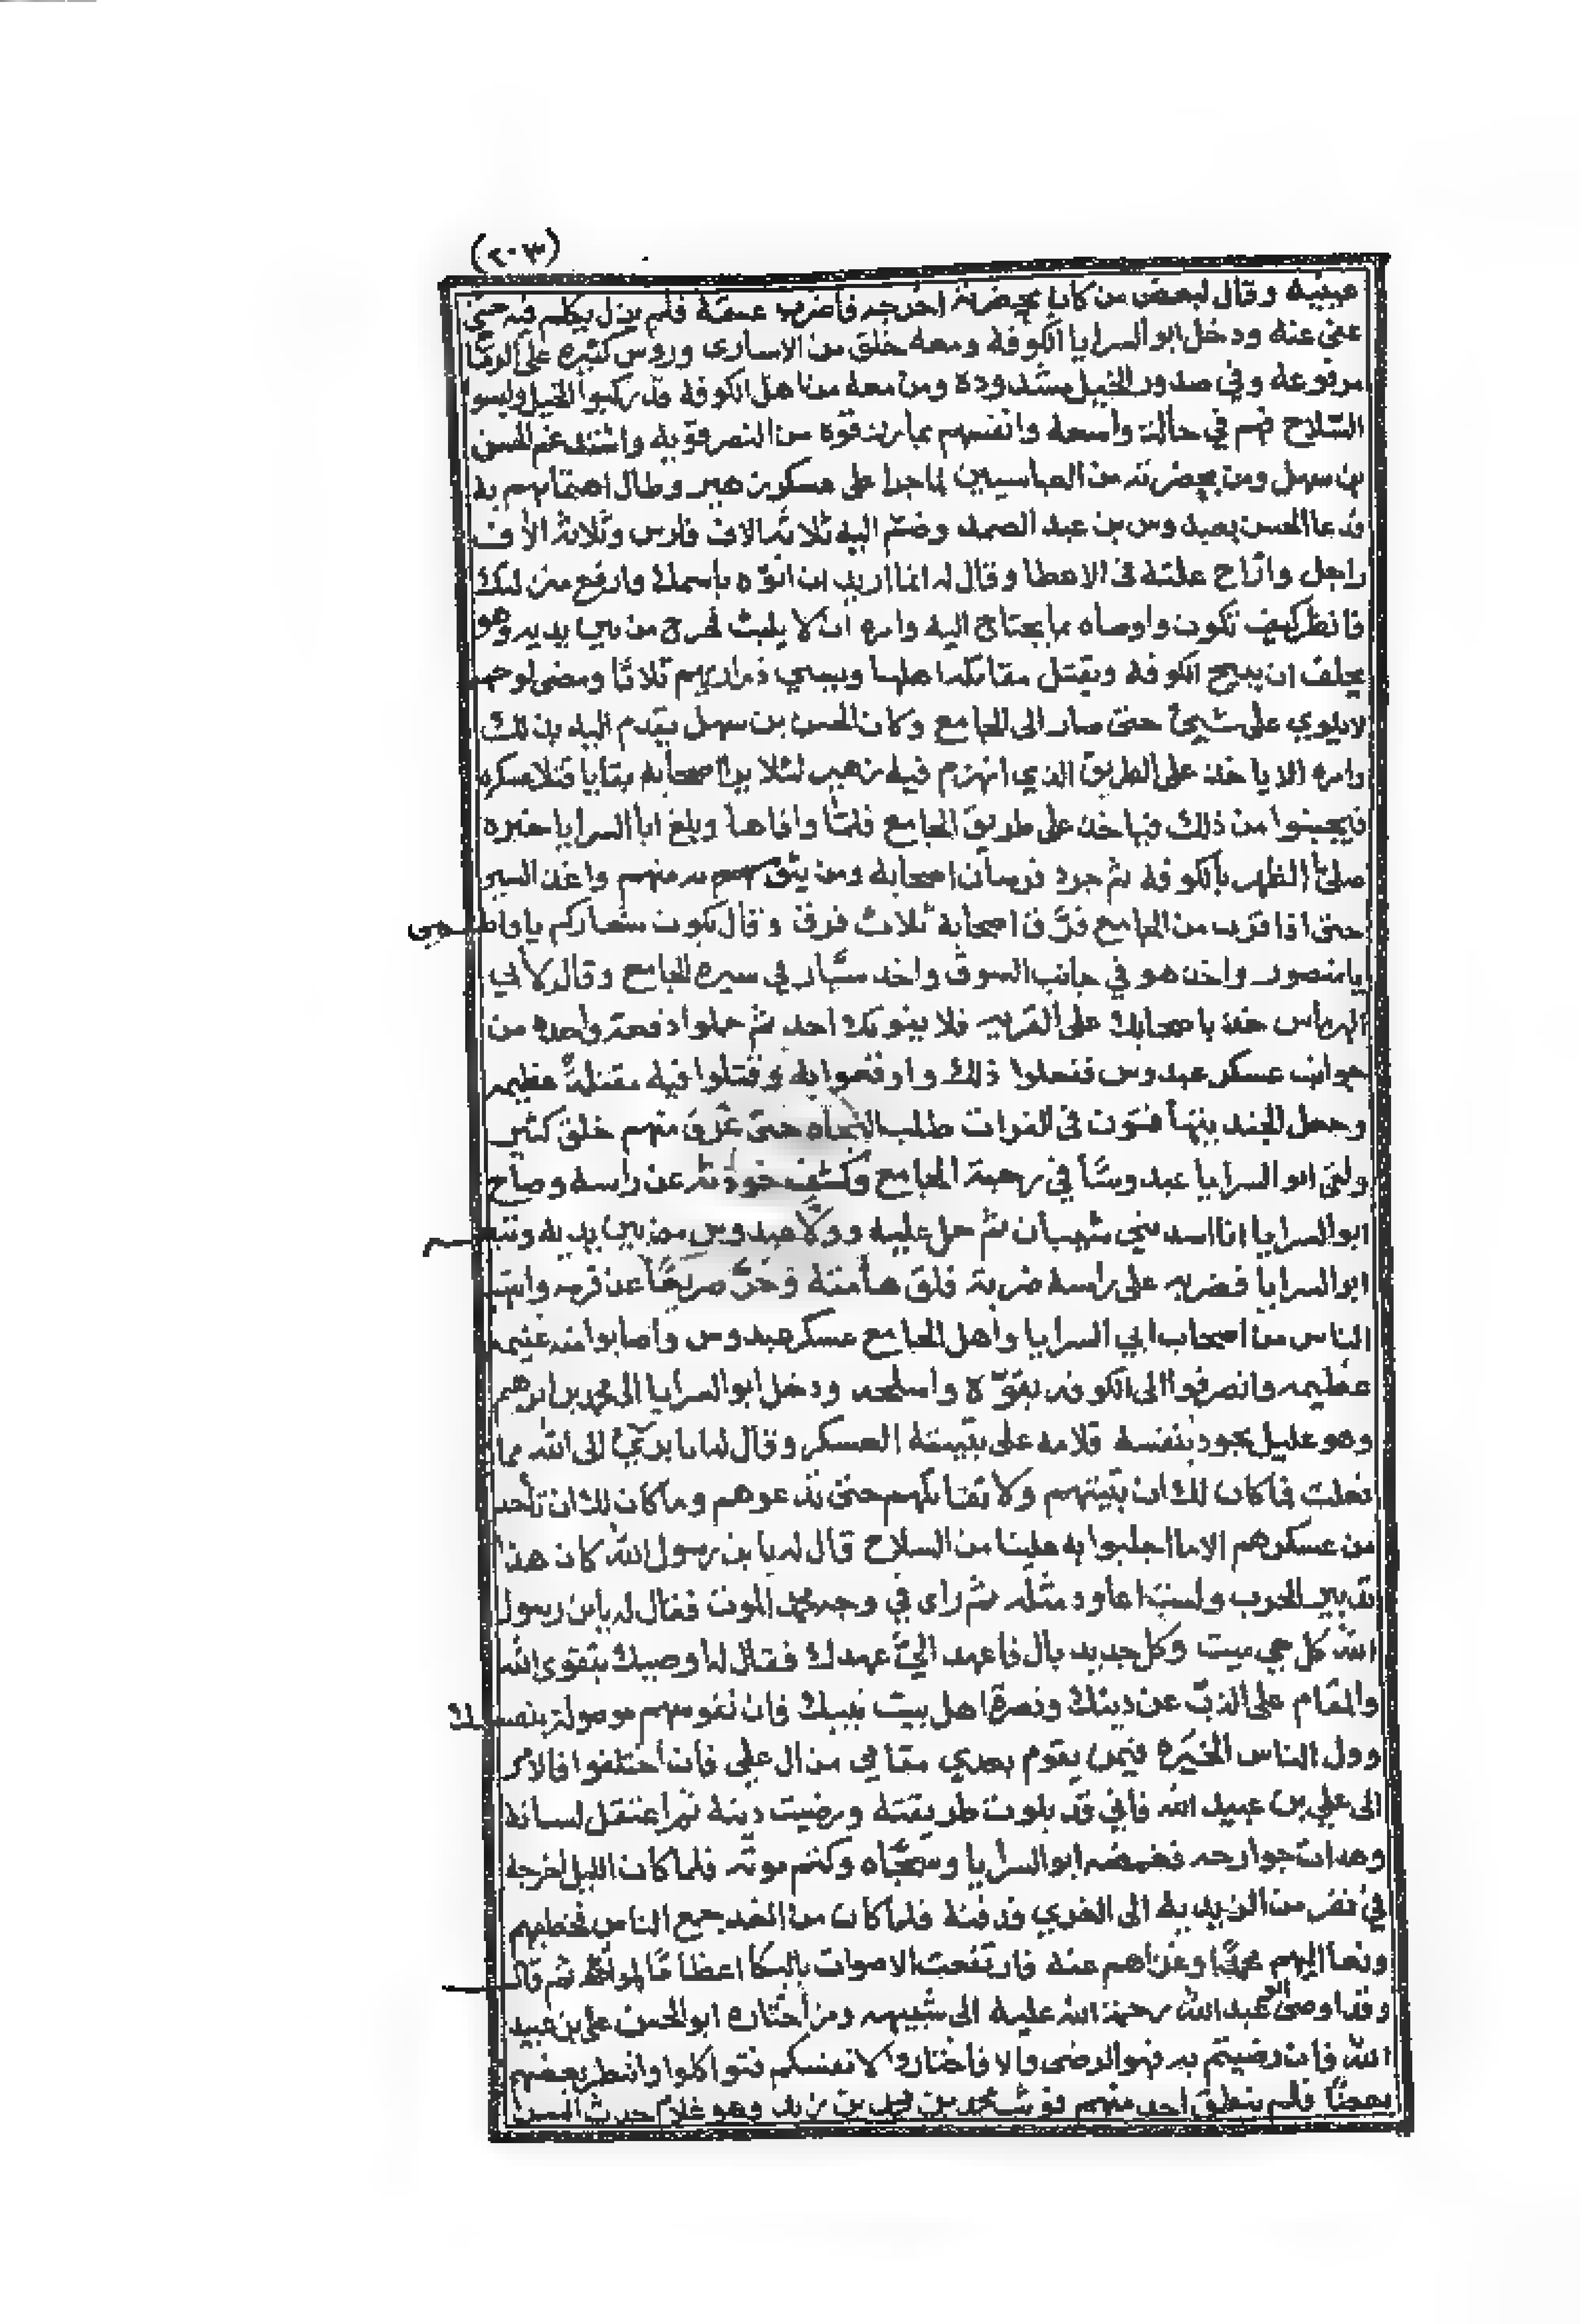 (٢٠٣)
عينيه وقال لبعض من كان بحضرته اخرجه فاضرب عنقه فلم يزل يكلم فيه حتى
عفى عنه ودخل ابو السرايا الكوفة ومعه خلق من الاسارى وروس كثيره على الرماح
مرفوعة وفي صدور الخيل مشدودة ومن معه من اهل الكوفة قد ركبوا الخيل ولبسوا
السلاح فهم في حالة واسعة وانفسهم بما رزقوه من النصر قويه واشتد غم الحسن
بن سهل ومن بحضرته من العباسيين لما جرا على عسكر زهير وطال اهتمامهم به
فدعا الحسن بعبدوس بن عبد الصمد وضم اليه ثلاثه الاف فارس وثلاثة الاف
راجل وازاح علته فى الاعطا وقال له انما اريد ان انوه باسمك وارفع منزلتك
فانظر كيف تكون واوصاه بما يحتاج اليه وامره ان لا يلبث فخرج من بين يديه وهو
يحلف ان يبيح الكوفة ويقتل مقاتلة اهلها ويسبي ذراريهم ثلاثا ومضى لوجهه
لا يلوي على شيئ حتى صار الى الجامع وكان الحسن بن سهل يقدم اليه بذلك
وامره الا ياخذ على الطريق الذي انهزم فيه زهير لئلا يرا اصحابه بقايا قتلا عسكره
فيجبنوا من ذلك فياخذ على طريق الجامع فلما وافاها وبلغ ابا السرايا خبره
صلى الظهر بالكوفة ثم جرد فرسان اصحابه ومن يثق بهم منهم واغذ السير
حتى اذا قرب من الجامع فرق اصحابه ثلاث فرق وقال يكون شعاركم يا فاطمي
يا منصور واخذ هو في جانب السوق واخذ سيار في سيره الجامع وقال لابي
الهرماس خذ باصحابك على القريه فلا يفوتك احد ثم حملوا دفعة واحده من
جوانب عسكر عبدوس ففعلوا ذلك واوقعوا به وقتلوا فيه مقتلة عظيمه
وجعل الجند يتهافتون فى الفرات طلب النجاه حتى غرق منهم خلق كثير
ولقى ابو السرايا عبدوسا في رحبة الجامع وكشف خوذته عن راسه وصاح
ابو السرايا انا اسد بني شيبان ثم حمل عليه وولا عبدوس من بين يديه وتبعه
ابو السرايا فضربه على راسه ضربة فلق هامته وخر صريعا عن فرسه وانتهب
الناس من اصحاب ابي السرايا واهل الجامع عسكر عبدوس واصابوا منه غنيمه
عظيمه وانصرفوا الى الكوفه بقوة واسلحه ودخل ابو السرايا الى محمد بن ابراهيم
وهو عليل يجود بنفسه فلامه على تبييته العسكر وقال له انا بريئ الى الله مما
فعلت فما كان لك ان تبيتهم ولا تقاتلهم حتى تدعوهم وما كان لك ان تأخذ
من عسكرهم الا ما اجلبوا به علينا من السلاح قال له يا بن رسول الله كان هذا
تدبير الحرب ولست اعاود مثله ثم راى في وجه محمد الموت فقال له يابن رسول
الله كل حي ميت وكل جديد بال فاعهد الي عهدك فقال له اوصيك بتقوى الله
والمقام على الذب عن دينك ونصرة اهل بيت نبيك فان نفوسهم موصولة بنفسك
وول الناس الخيره فيمن يقوم بعدي مقامي من ال على فان اختلفوا فالامر
الى علي بن عبيد الله فاني قد بلوت طريقته ورضيت دينه ثم اعتقل لسانه
وهدات جوارحه فغمضه ابو السرايا وسجاه وكتم موته فلما كان الليل اخرجه
في نفر من الزيديه الى الغري فدفنه فلما كان من الغد جمع الناس فخطبهم
ونعا اليهم محمدا وعزاهم عنه فارتفعت الاصوات بالبكا اعظاما لموته ثم قال
وقد اوصى ابو عبد الله رحمة الله عليه الى شبيهه ومن اختاره ابو الحسن على بن عبيد
الله فان رضيتم به فهو الرضى والا فاختاروا لانفسكم فتواكلوا وانظر بعضهم
بعضا فلم ينطق احد منهم فوثب محمد بن محمد بن زيد وهو غلام حدث السن